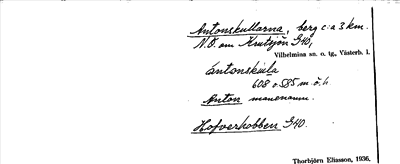 Antonskullarna, berg c:a 3 km.
N.O. om Krutsjön G40,
Vilhelmina sn. o. tg., Västerb. l.
ántonskúla
608 o. 585 m.ö.h.
Anton mansnamn.
Hofverhobben G40.
Thorbjörn Eliasson, 1936.